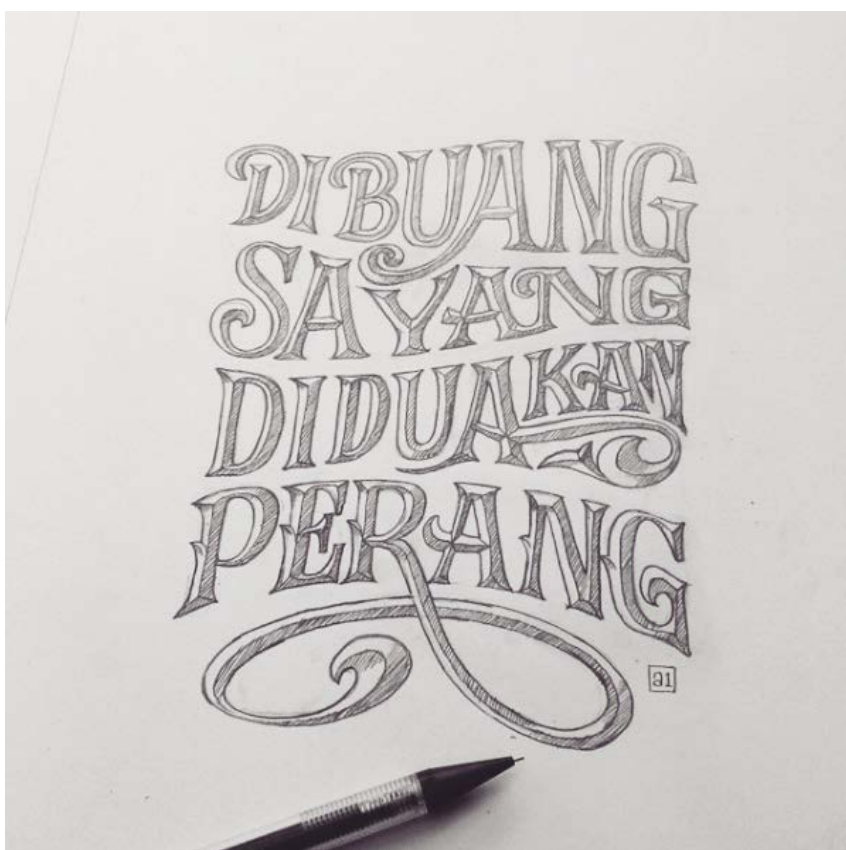 DIBUANG
SAYANG
DIDUAKAN
PERANG
a1